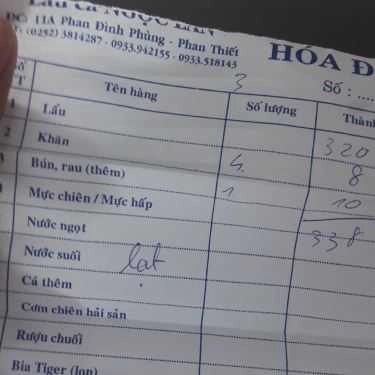 Lẩu cá NGỌC LAN
ĐC: 11A Phan Đình Phùng - Phan Thiết
ĐT: (0252) 3814287 - 0933.942155 - 0933.518143
HÓA Đ
Số : ....
3
Số TT Tên hàng Số lượng Thành
1 Lẩu 320
2 Khăn 4 8
3 Bún, rau (thêm) 1 10
4 Mực chiên / Mực hấp 338
Nước ngọt
Nước suối lat
Cá thêm
Cơm chiên hải sản
Rượu chuối
Bia Tiger (lon)